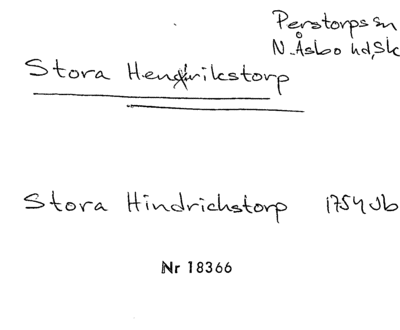 Perstorps sn
N. Åsbo hd, Sk
Stora Hendrikstorp
Stora Hindrichstorp 1754 Jb
Nr 18366